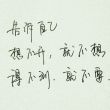 告诉自己
想不开，就不想
得不到，就不要